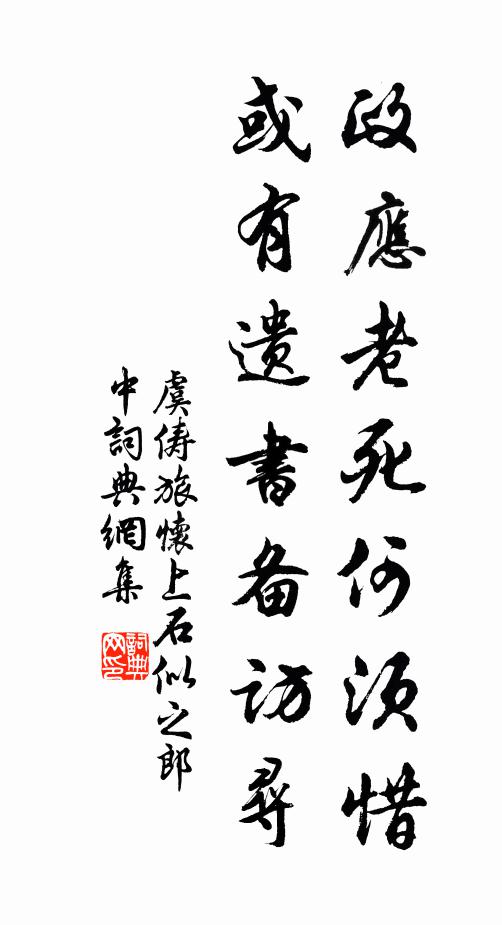 政應老死何須惜
或有遺書备訪尋
虞儔旅懷上石似之郎
中詞典網集
詞典网印